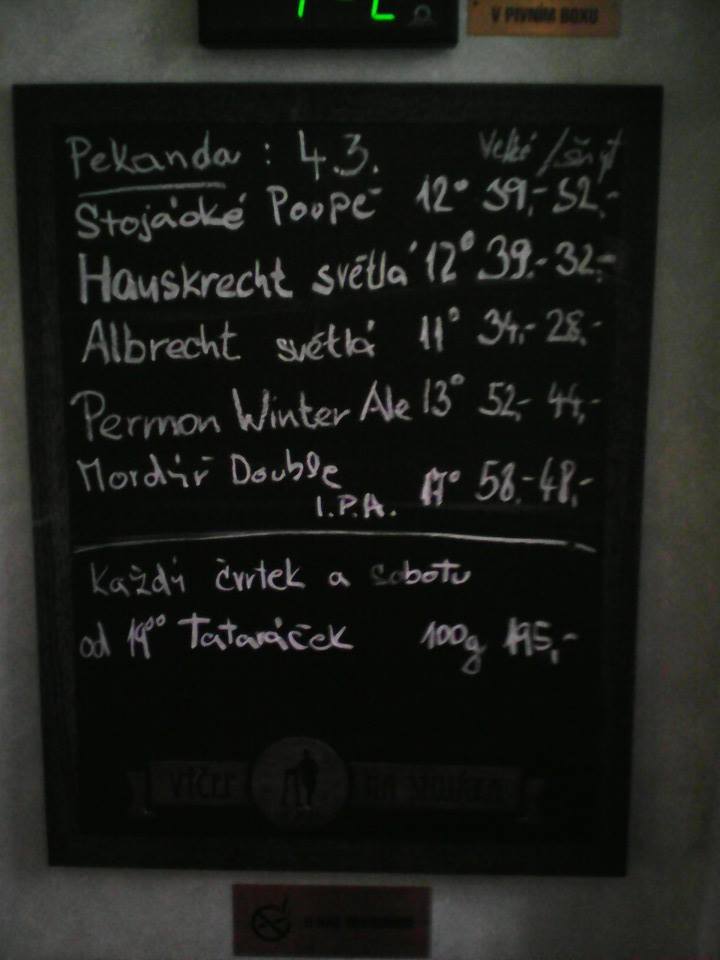 V PIVNÍM BOXU
Pekanda : 4.3. Velké /šnyt
Stojácké Poupě 12° 39,- 32,-
Hauskrecht světlá 12° 39,- 32,-
Albrecht světlá 11° 34,- 28,-
Permon Winter Ale 13° 52,- 44,-
Mordýř Double 17° 58,- 48,-
I.P.A.
Každý čvrtek a sobotu
od 19⁰⁰ Tataráček 100g 195,-
VÝČEP NA STOJÁKA